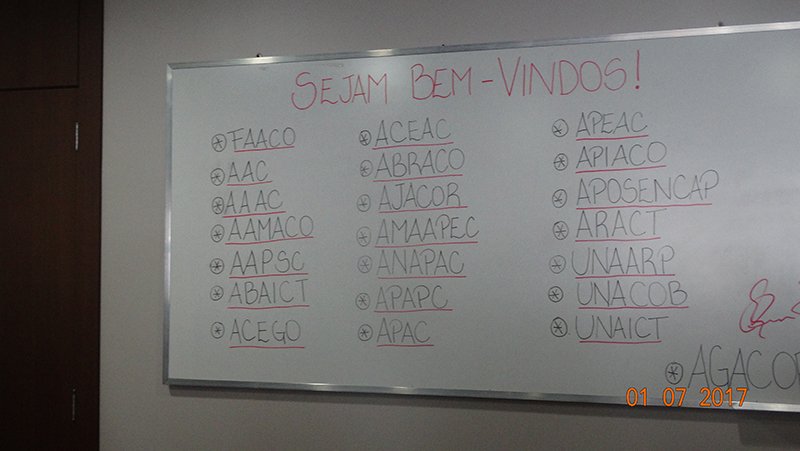 SEJAM BEM-VINDOS!
FAACO
AAC
AAAC
AAMACO
AAPSC
ABAICT
ACEGO
ACEAC
ABRACO
AJACOR
AMAAPEC
ANAPAC
APAPC
APAC
APEAC
APIACO
APOSENCAP
ARACT
UNAARP
UNACOB
UNAICT
01 07 2017